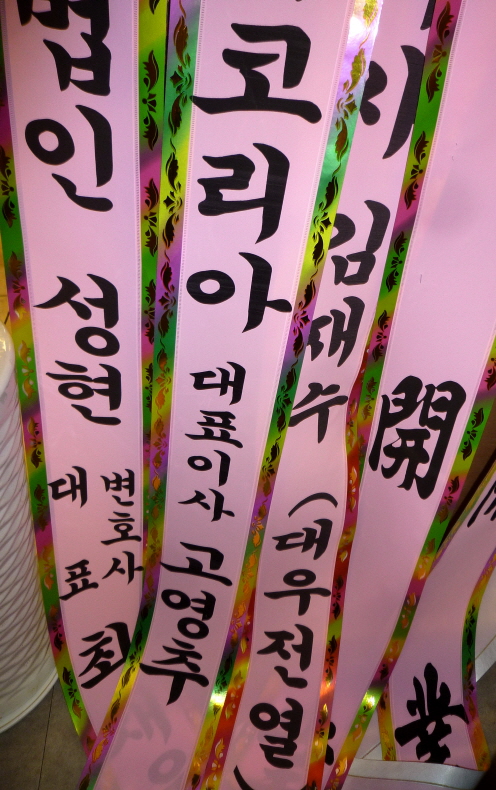 법인 성현
대표
변호사
최
코리아
대표이사 고영추
임재수
(대우전열)
開
業